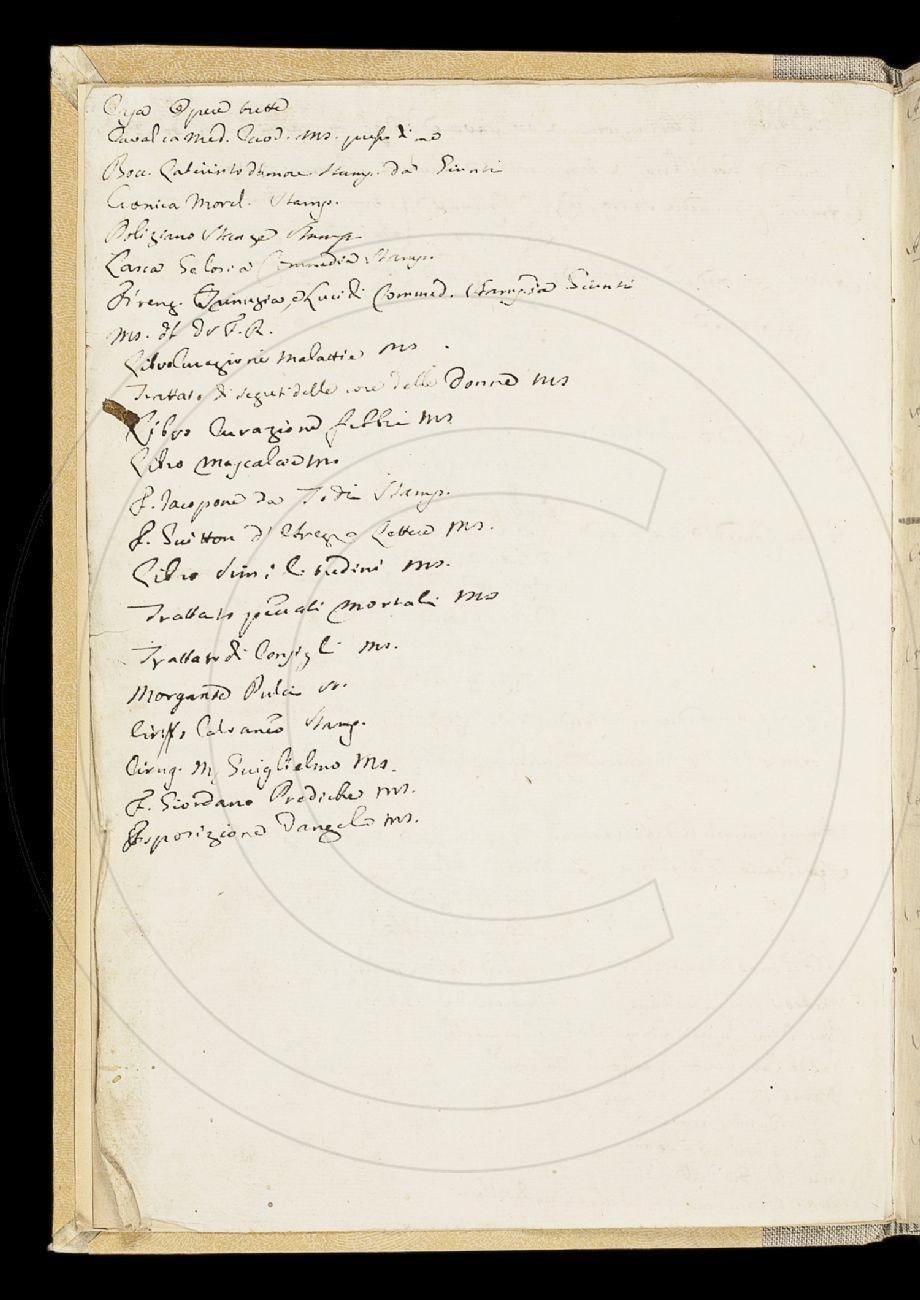 Casa Opere tutte
Cavalca Med. Cuor. Ms. presso di me
Bocc. Laberinto d'Amore Stamp. da Giunti
Cronica Morel. Stamp.
Poliziano Stanze Stamp.
Lasca Gelosia Commedia Stamp.
Firenz. Trinuzia, e Lucidi Commed. Stamp. da Giunti
Ms. di F. R.
Libro Curazione Malattie Ms
Trattato di segreti delle cose delle Donne Ms
Libro Curazione febbri Ms
Libro Mascalcie Ms
F. Iacopone da Todi Stamp.
F. Guittone d'Arezzo Lettere Ms.
Libro Similitudini Ms.
Trattato peccati Mortali Ms
Trattato di Consigli Ms.
Morgante Pulci St.
Ciriffo Calvaneo Stamp.
Cirug. M. Guiglielmo Ms.
F. Giordano Prediche Ms.
Esposizione Vangelo Ms.